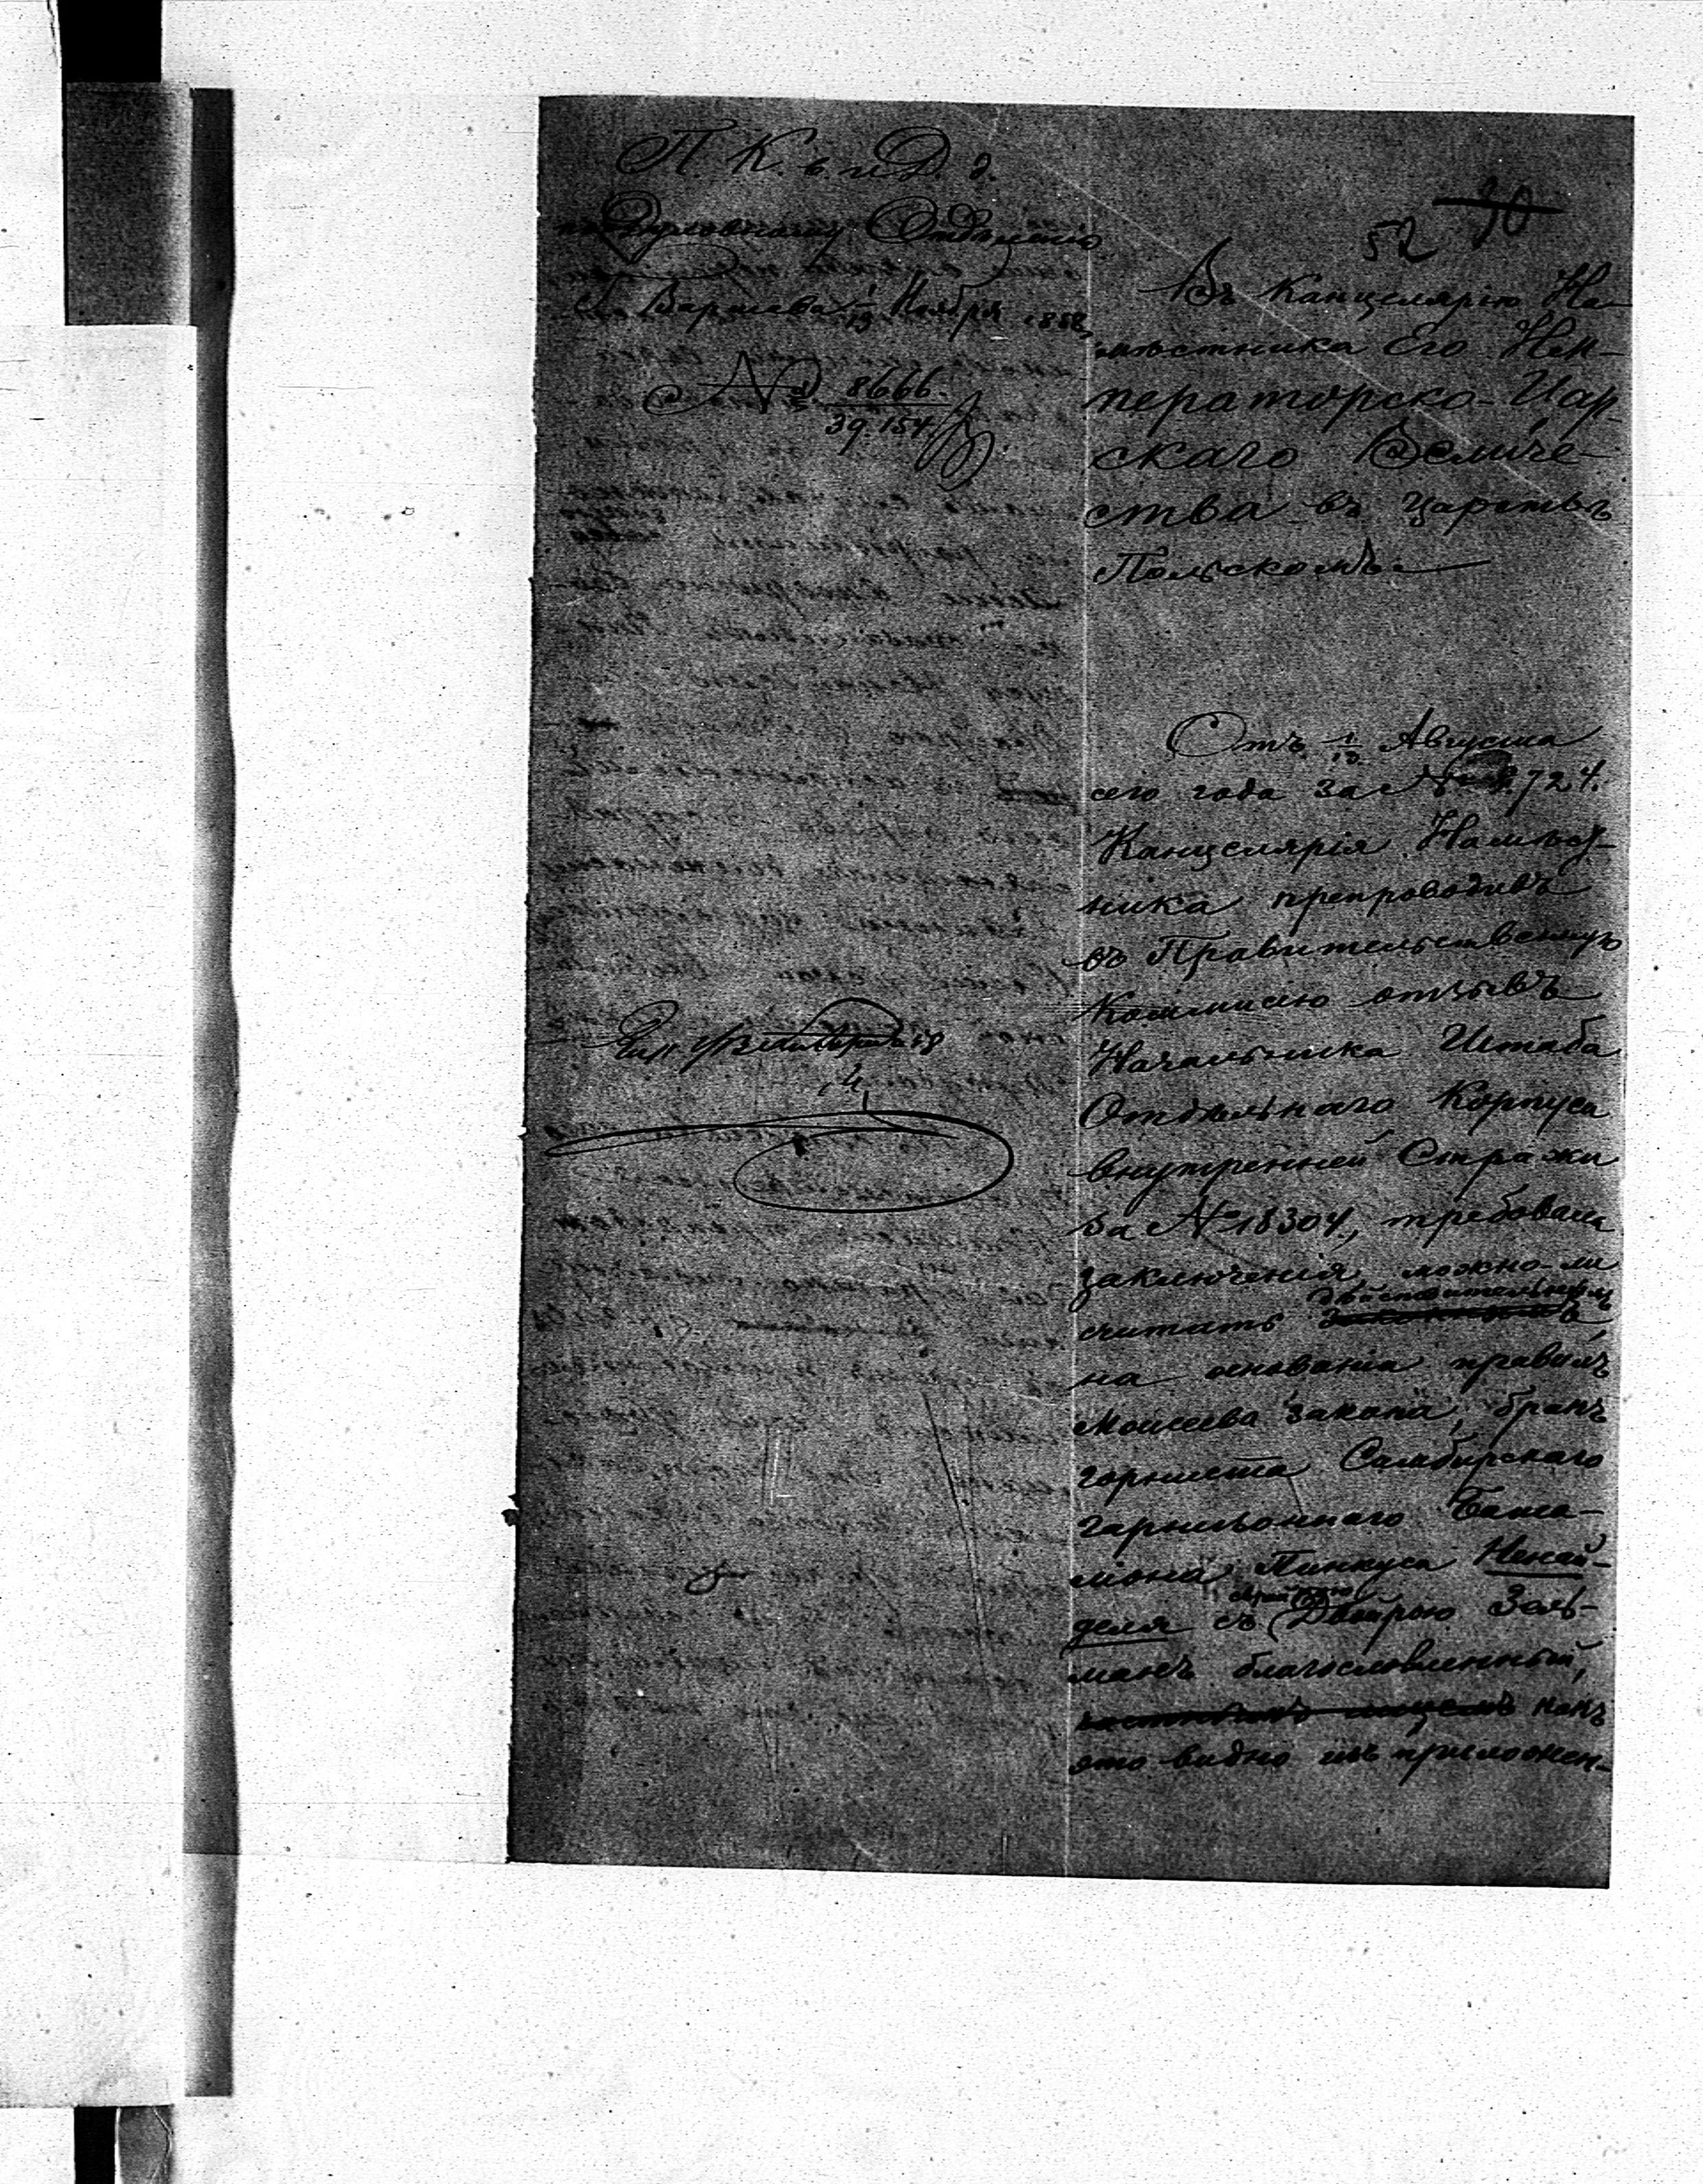 П. К. в. и Д. д.
по Духовному Отдѣленію
г. Варшава 1/13 Ноября 1852
№ 8666.
39.154
52 90
Въ Канцелярію На-
мѣстника Его Им-
ператорско-Цар-
скаго Величе-
ства въ Царствѣ
Польскомъ.
Отъ 1/13 Августа
сего года за № 9724.
Канцелярія Намѣст-
ника препроводивъ
въ Правительственную
Коммисію отзывъ
Начальника Штаба
Отдѣльнаго Корпуса
Внутренней Стражи
за № 18304, требовала
заключенія, можно-ли
считать дѣйствительнымъ
на основаніи правилъ
Моисеева закона, бракъ
горниста Симбирскаго
гарнизоннаго Бата-
ліона, Пинкуса Ненай-
деля съ Двойрою Зель-
манъ благословленный,
какъ
это видно изъ приложен-